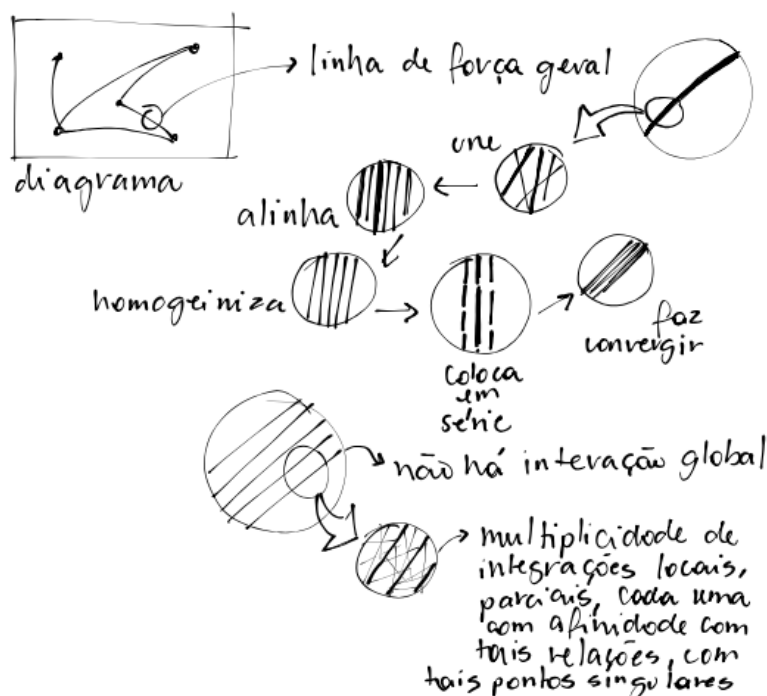 diagrama
linha de força geral
une
alinha
homogeiniza
coloca
em
série
faz
convergir
não há interação global
multiplicidade de
integrações locais,
parciais, cada uma
com afinidade com
tais relações, com
tais pontos singulares